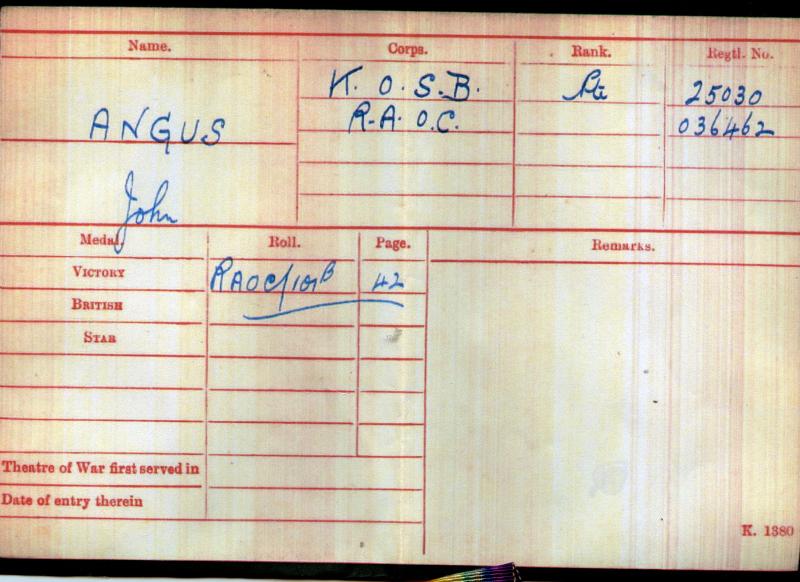 Name. Corps. Rank. Regtl. No.
K. O. S. B. Pte 25030
ANGUS R.A.O.C. 036462
John
Medal. Roll. Page. Remarks.
VICTORY RAOC/101B 42
BRITISH
STAR
Theatre of War first served in
Date of entry therein
K. 1380